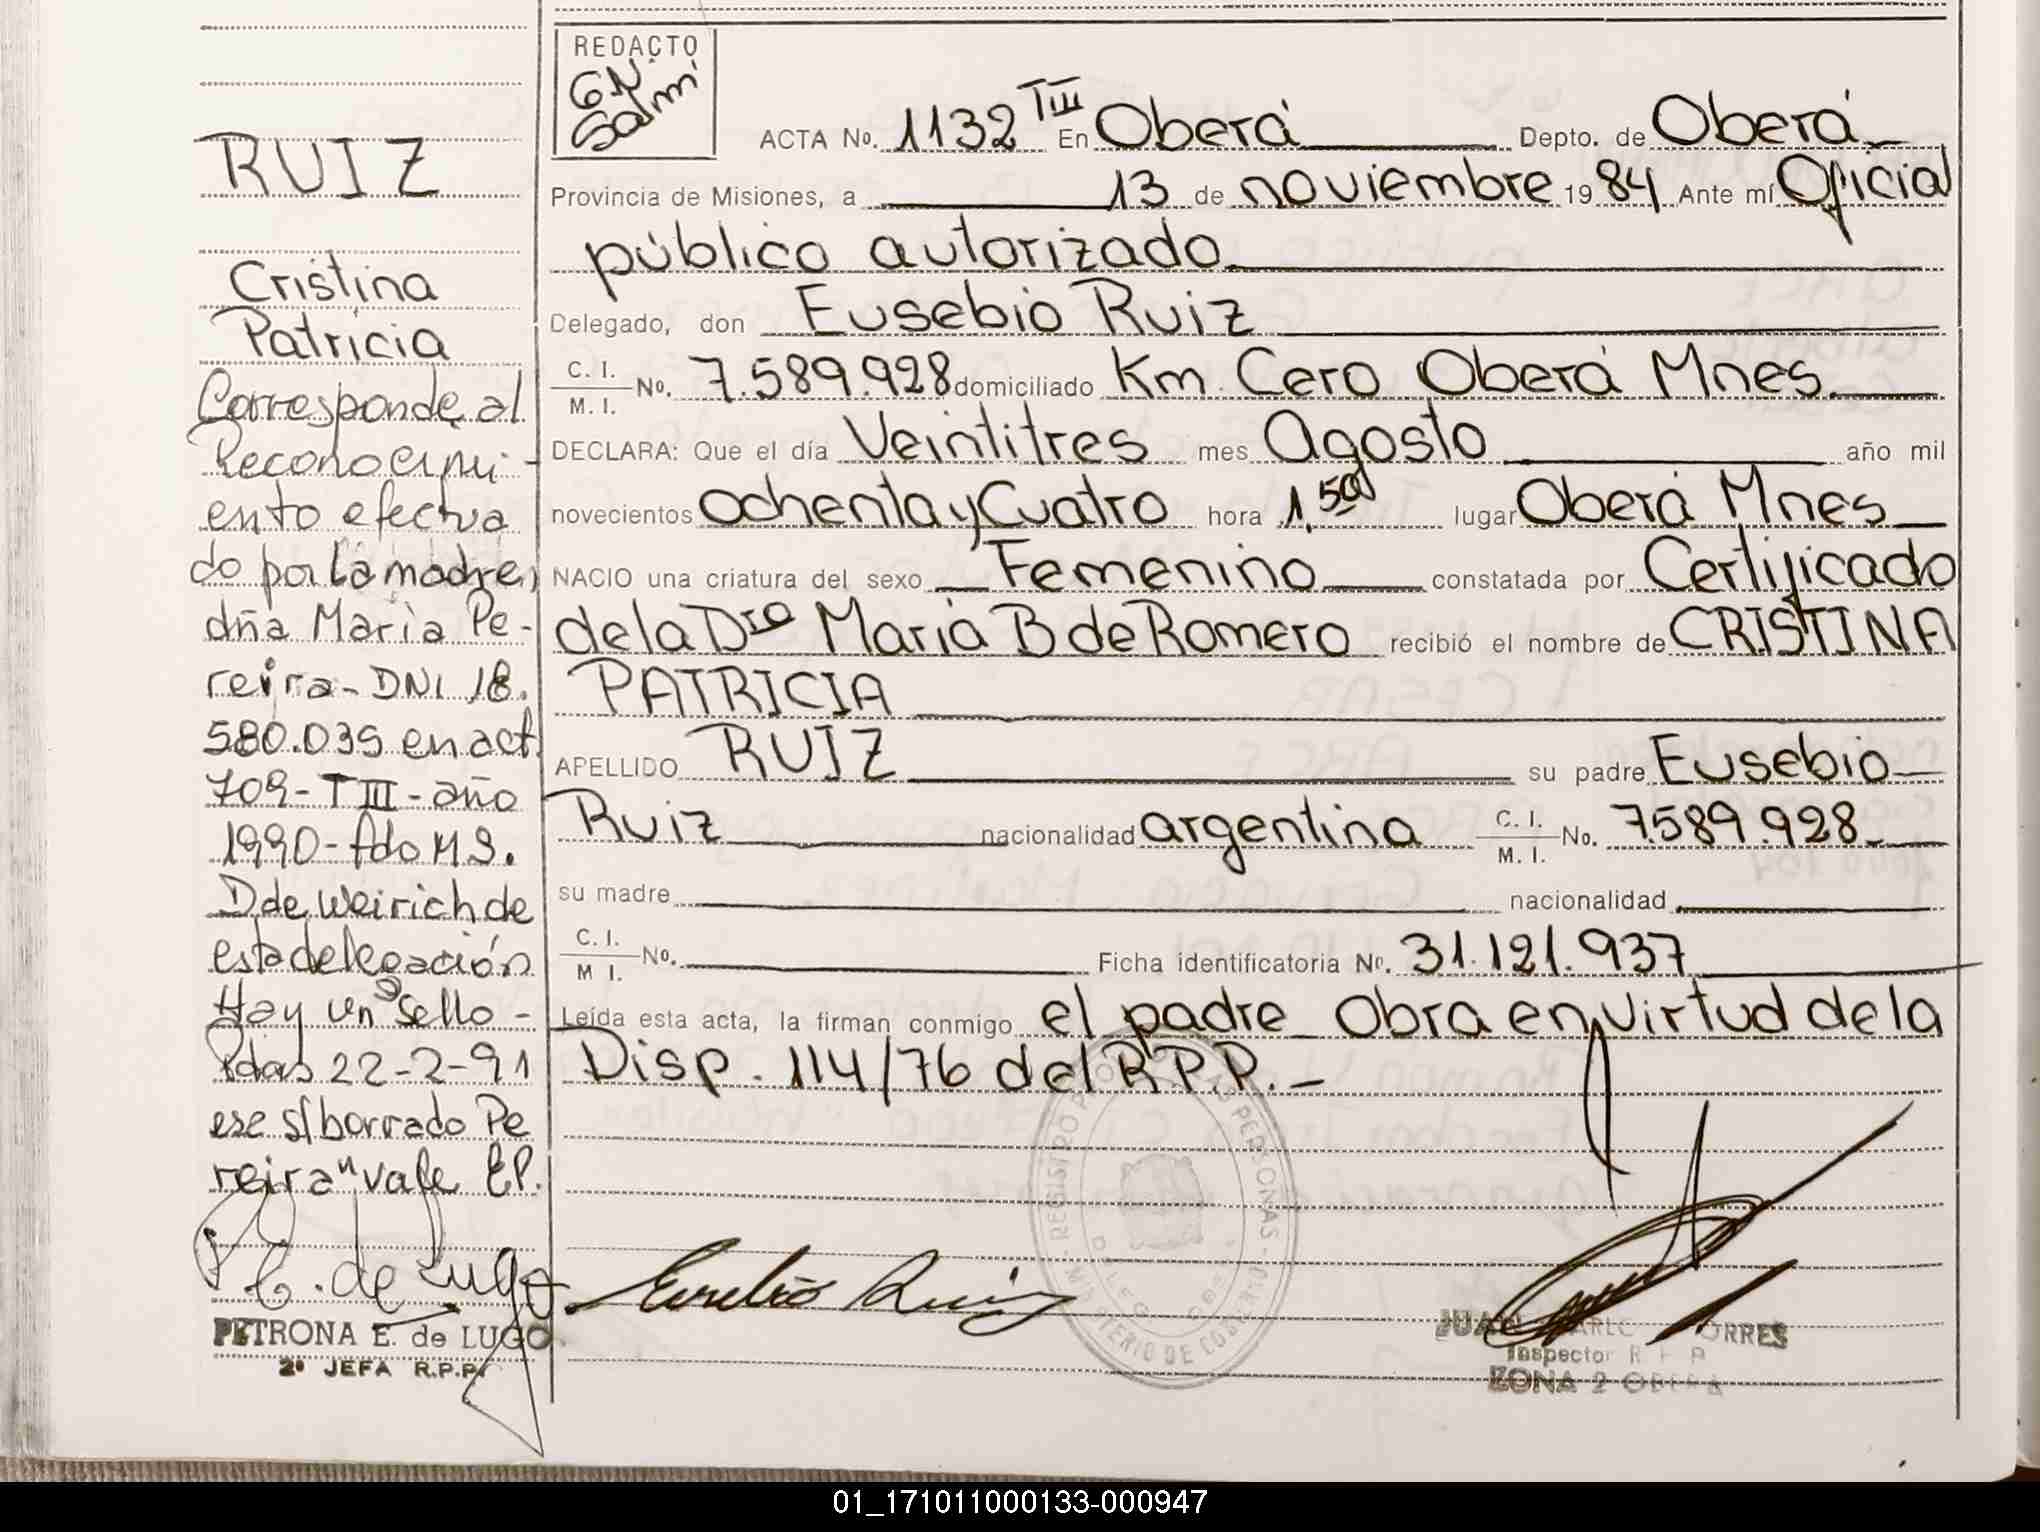 RUIZ
Cristina
Patricia
Corresponde al
Reconocimi-
ento efectua
do por la madre,
dña María Pe-
reira - DNI 18.
580.035 en act.
709 - T III - año
1990 - Fdo M S.
D de Weirich de
esta delegación
Hay un sello -
Pdas 22-2-91
ese s/borrado Pe
reira" vale EP.
P E. de Lugo
PETRONA E. de LUGO
2º JEFA R.P.P.
REDACTO
GN.
Salmi
ACTA No. 1132 TIII En Oberá Depto. de Oberá
Provincia de Misiones, a 13 de noviembre 19 84 Ante mí Oficial
público autorizado
Delegado, don Eusebio Ruiz
C. I. / M. I. No. 7.589.928 domiciliado Km. Cero Oberá Mnes.
DECLARA: Que el día Veintitres mes Agosto año mil
novecientos Ochenta y Cuatro hora 1,50 lugar Oberá Mnes
NACIO una criatura del sexo Femenino constatada por Certificado
de la Dra María B de Romero recibió el nombre de CRISTINA
PATRICIA
APELLIDO RUIZ su padre Eusebio
Ruiz nacionalidad argentina C. I. / M. I. No. 7.589.928
su madre nacionalidad
C. I. / M I. No. Ficha identificatoria Nº. 31.121.937
Leída esta acta, la firman conmigo el padre Obra en virtud de la
Disp. 114/76 del R.P.P. -
Eusebio Ruiz
REGISTRO PROVINCIAL DE LAS PERSONAS
MINISTERIO DE GOBIERNO
JUAN CARLOS TORRES
Inspector R P P
ZONA 2 OBERA
01_171011000133-000947